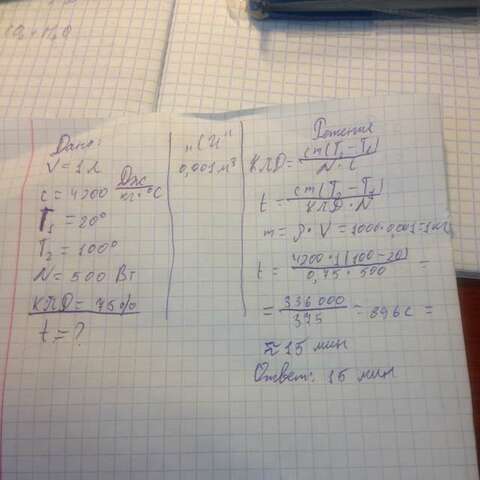 Дано:
V = 1 л
c = 4200 Дж/кг·°C
T₁ = 20°
T₂ = 100°
N = 500 Вт
КПД = 75%
t = ?
„СИ“
0,001 м³
Решение
КПД = cm(T₂-T₁)/N·t
t = cm(T₂-T₁)/КПД·N
m = ρ·V = 1000·0,001=1кг
t = 4200·1(100-20)/0,75·500 =
= 336000/375 = 896с =
≈ 15 мин
Ответ: 15 мин